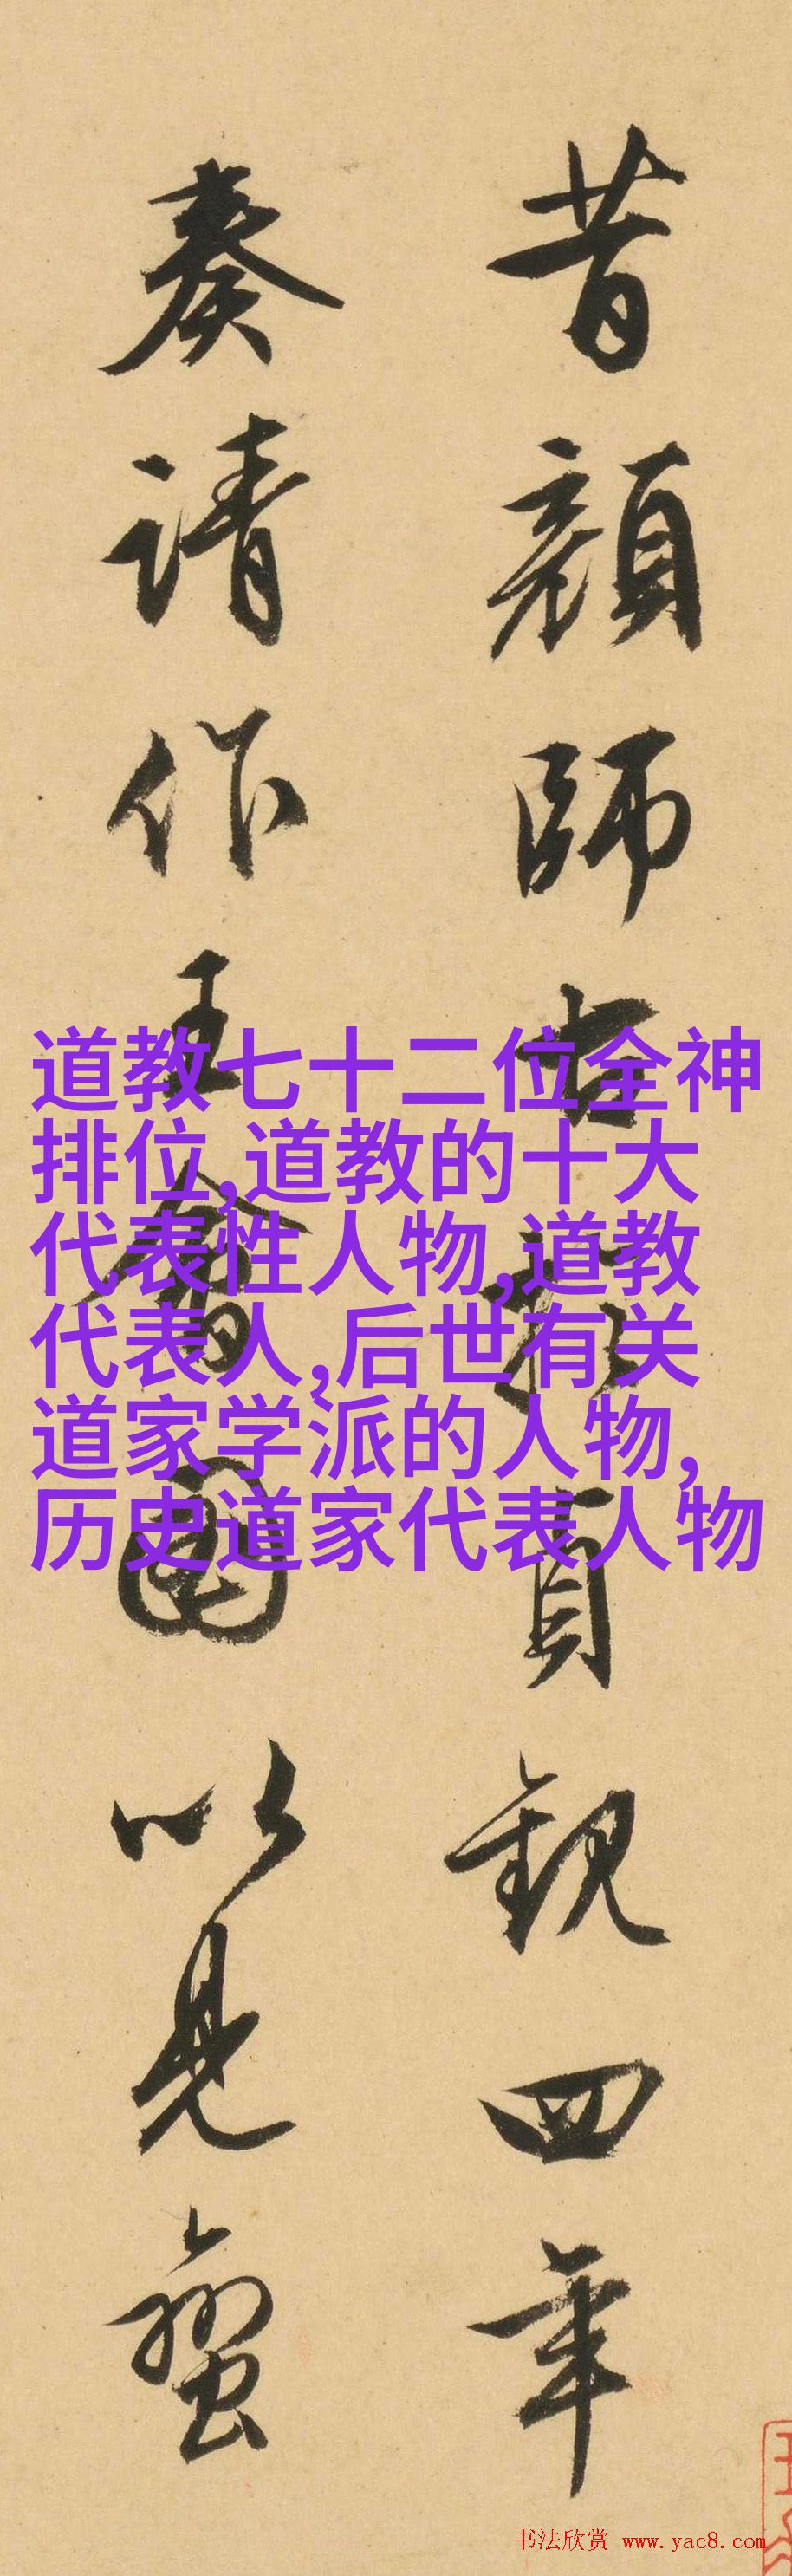 昔顔師古於貞観四年
奏請作王會圖以見蠻
道教七十二位全神
排位,道教的十大
代表性人物,道教
代表人,后世有关
道家学派的人物,
历史道家代表人物
书法欣赏 www.yac8.com